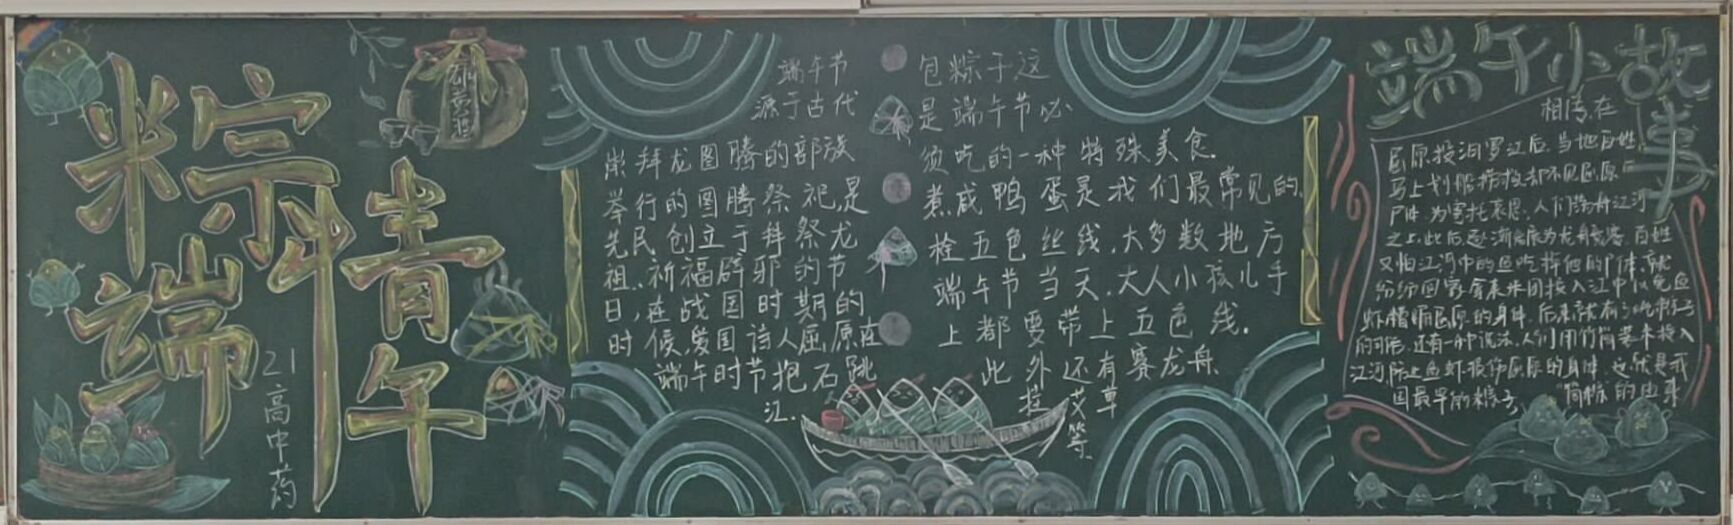 粽情端午
21高中药
雄黄酒
端午节
源于古代
崇拜龙图腾的部族
举行的图腾祭祀,是
先民创立于拜祭龙
祖、祈福辟邪的节
日,在战国时期的
时候,爱国诗人屈原在
端午时节抱石跳
江.
包粽子这
是端午节必
须吃的一种特殊美食.
煮咸鸭蛋是我们最常见的.
栓五色丝线.大多数地方
端午节当天.大人小孩儿手
上都要带上五色线.
此外还有赛龙舟.
挂艾草
等.
端午小故事
相传.在
屈原投汨罗江后.当地百姓
马上划船捞救却不见屈原
尸体.为寄托哀思.人们荡舟江河
之上.此后逐渐发展为龙舟竞赛.百姓
又怕江河中的鱼吃掉他的尸体.就
纷纷回家拿来米团投入江中以免鱼
虾糟蹋屈原的身体.后来就有了吃粽子
的习俗.还有一种说法.人们用竹筒装米投入
江河防止鱼虾损伤屈原的身体.也就是我
国最早的粽子."筒粽"的由来